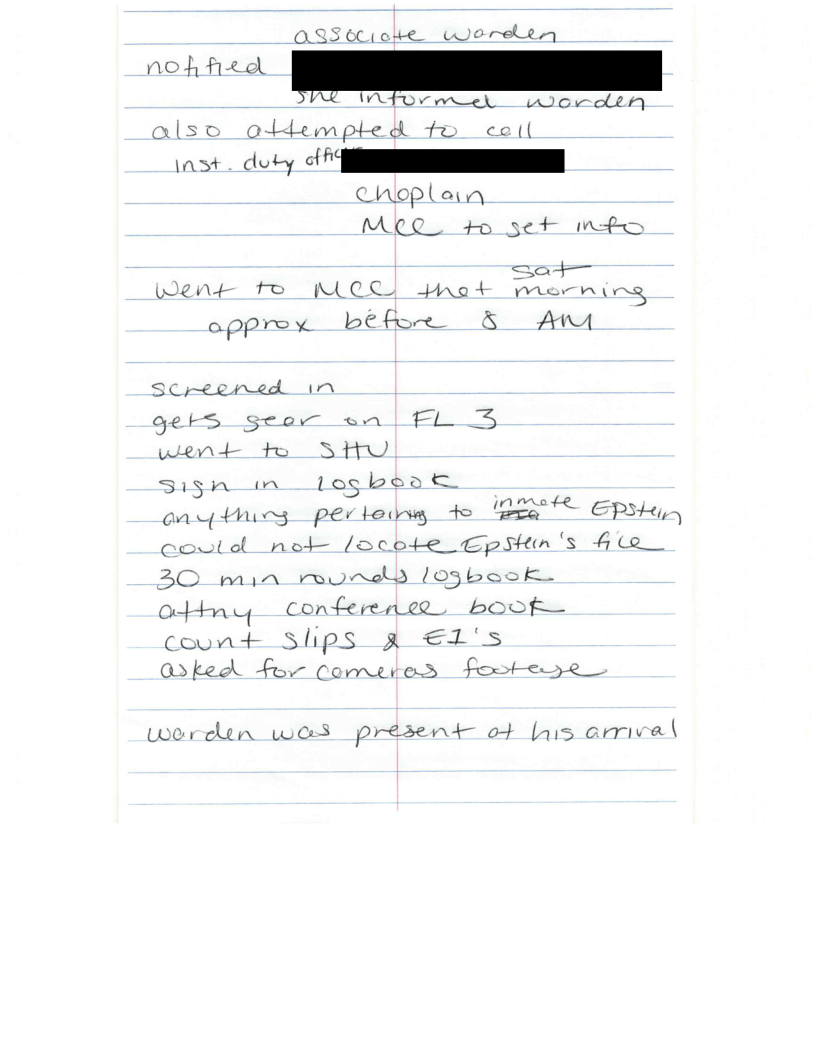 associate warden
notified
she informed warden
also attempted to call
inst. duty offic
chaplain
MCC to get info
sat
went to MCC that morning
approx before 8 AM
screened in
gets gear on FL 3
went to SHU
sign in logbook
anything pertaining to inmate Epstein
could not locate Epstein's file
30 min rounds logbook
attny conference book
count slips & EI's
asked for cameras footage
warden was present at his arrival